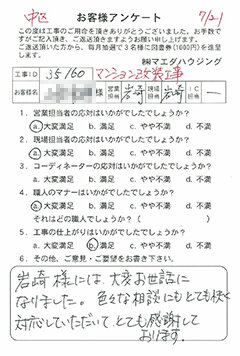 中区
7/21
お客様アンケート
この度は工事のご用命を頂きありがとうございました。お手数で
すがご記入頂き、ご返送下さいますようお願い申し上げます。
ご返送頂いた方から、毎月抽選で3名様に図書券(1000円)を進呈
します。
㈱マエダハウジング
工事ID 35160 マンション改装工事
お客様名 様 営業担当 岩崎 現場担当 岩崎 IC 一
1. 営業担当者の応対はいかがでしたでしょうか?
a.大変満足 b.満足 c.やや不満 d.不満
2. 現場担当者の応対はいかがでしたでしょうか?
a.大変満足 b.満足 c.やや不満 d.不満
3. コーディネーターの応対はいかがでしたでしょうか?
a.大変満足 b.満足 c.やや不満 d.不満
4. 職人のマナーはいかがでしたでしょうか?
a.大変満足 b.満足 c.やや不満 d.不満
それはどの職人でしょうか?( )
5. 工事の仕上がりはいかがでしたでしょうか?
a.大変満足 b.満足 c.やや不満 d.不満
6. その他、ご意見・ご要望をお書き下さい。
岩崎様には、大変お世話に
なりました。色々な相談にもとても快く
対応していただいて、とても感謝して
おります。